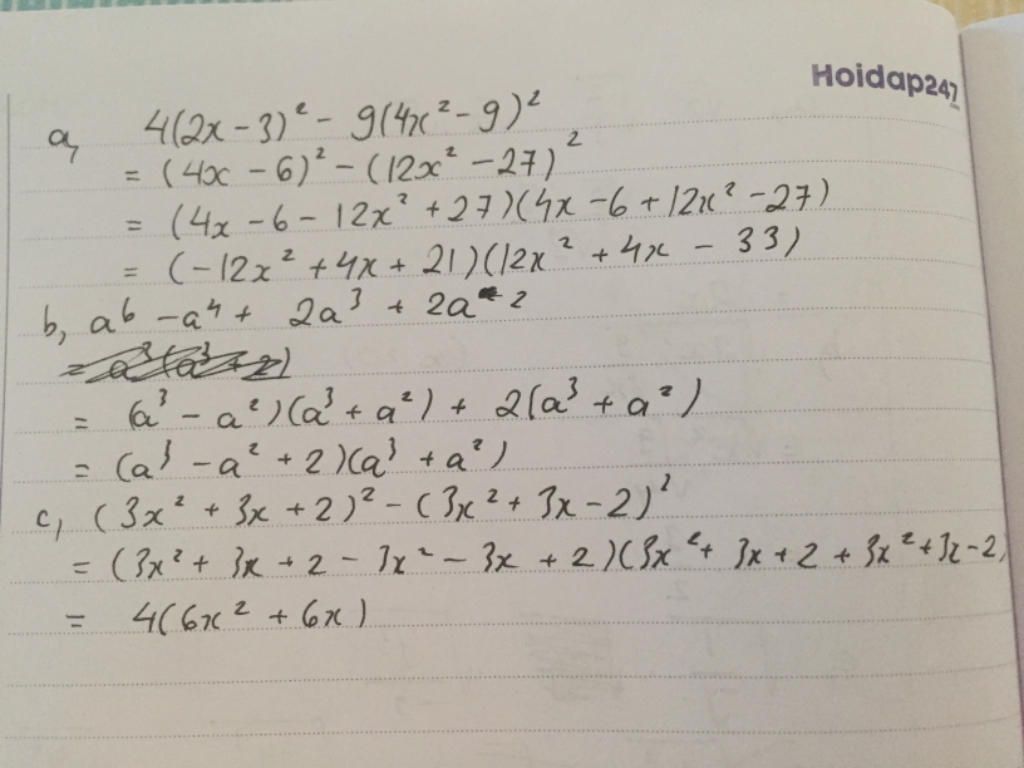 Hoidap247
a, 4(2x - 3)² - 9(4x² - 9)²
= (4x - 6)² - (12x² - 27)²
= (4x - 6 - 12x² + 27)(4x - 6 + 12x² - 27)
= (-12x² + 4x + 21)(12x² + 4x - 33)
b, a⁶ - a⁴ + 2a³ + 2a²
= a³(a³ + 2)
= (a³ - a²)(a³ + a²) + 2(a³ + a²)
= (a³ - a² + 2)(a³ + a²)
c, (3x² + 3x + 2)² - (3x² + 3x - 2)²
= (3x² + 3x + 2 - 3x² - 3x + 2)(3x² + 3x + 2 + 3x² + 3x - 2)
= 4(6x² + 6x)